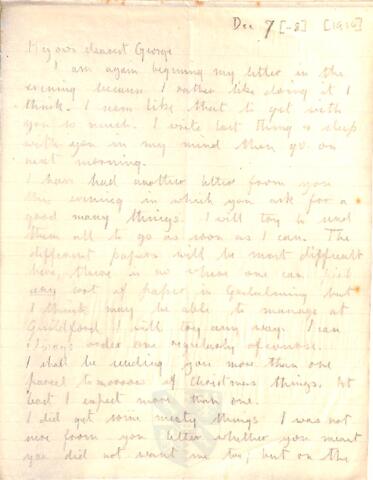 Dec 7 [-8] [1916]
My own dearest George
I am again beginning my letter in the
evening because I rather like doing it I
think. I seem like that to get with
you so much. I write last thing & sleep
with you in my mind then go on
next morning.
I have had another letter from you
this evening in which you ask for a
good many things. I will try to send
them all to go as soon as I can. The
different papers will be most difficult
here, there is no where one can
any sort of paper in Godalming but
I think may be able to manage at
Guildford I will try any way. I can
always order one regularly of course.
I shall be sending you more than one
parcel tomorrow of Christmas things. At
least I expect more than one.
I did get some meaty things I was not
sure from your letter whether you meant
you did not want me to, but on the